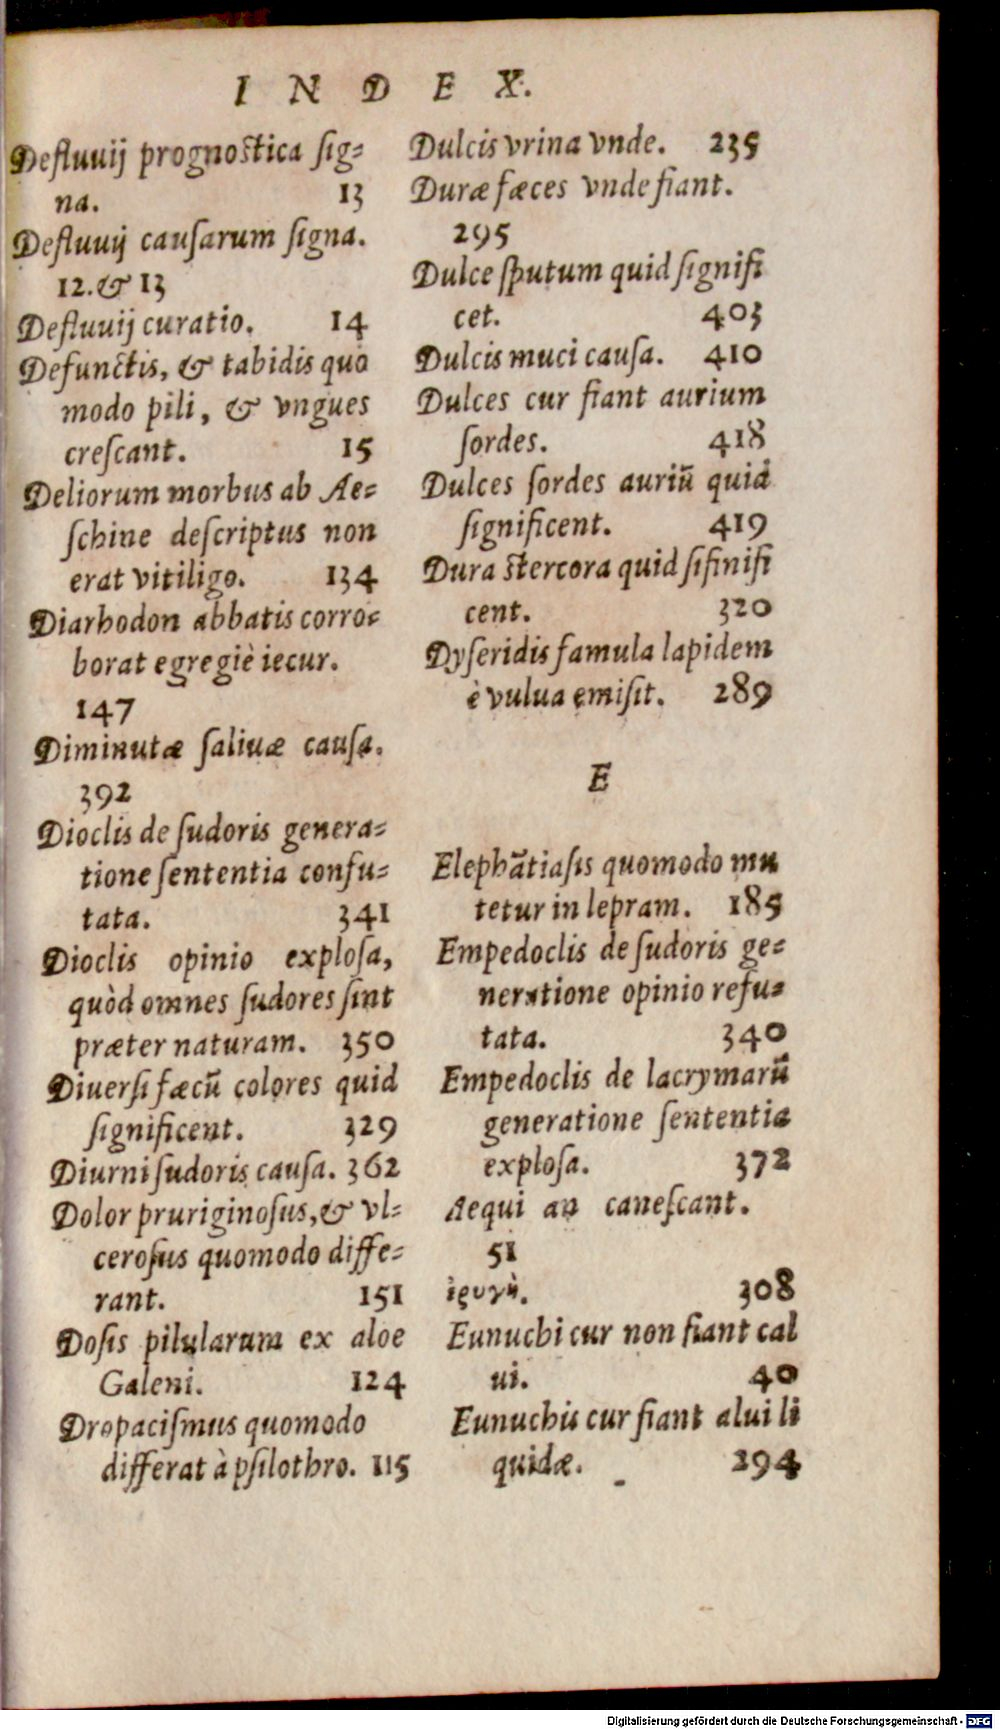 INDEX.
Defluuij prognostica sig-
na. 13
Defluuij causarum signa.
12. & 13
Defluuij curatio. 14
Defunctis, & tabidis quo
modo pili, & vngues
crescant. 15
Deliorum morbus ab Ae-
schine descriptus non
erat vitiligo. 134
Diarhodon abbatis corro-
borat egregiè iecur.
147
Diminutæ saliuæ causa.
392
Dioclis de sudoris genera-
tione sententia confu-
tata. 341
Dioclis opinio explosa,
quòd omnes sudores sint
præter naturam. 350
Diuersi fæcū colores quid
significent. 329
Diurni sudoris causa. 362
Dolor pruriginosus, & vl-
cerosus quomodo diffe-
rant. 151
Dosis pilularum ex aloe
Galeni. 124
Dropacismus quomodo
differat à psilothro. 115
Dulcis vrina vnde. 235
Duræ fæces vnde fiant.
295
Dulce sputum quid signifi
cet. 403
Dulcis muci causa. 410
Dulces cur fiant aurium
sordes. 418
Dulces sordes auriū quid
significent. 419
Dura stercora quid sifinifi
cent. 320
Dyseridis famula lapidem
è vulua emisit. 289
E
Elephātiasis quomodo mu
tetur in lepram. 185
Empedoclis de sudoris ge-
neratione opinio refu-
tata. 340
Empedoclis de lacrymarū
generatione sententia
explosa. 372
Aequi an canescant.
51
308
Eunuchi cur non fiant cal
ui. 40
Eunuchis cur fiant alui li
quidæ. 294
Digitalisierung gefördert durch die Deutsche Forschungsgemeinschaft - DFG